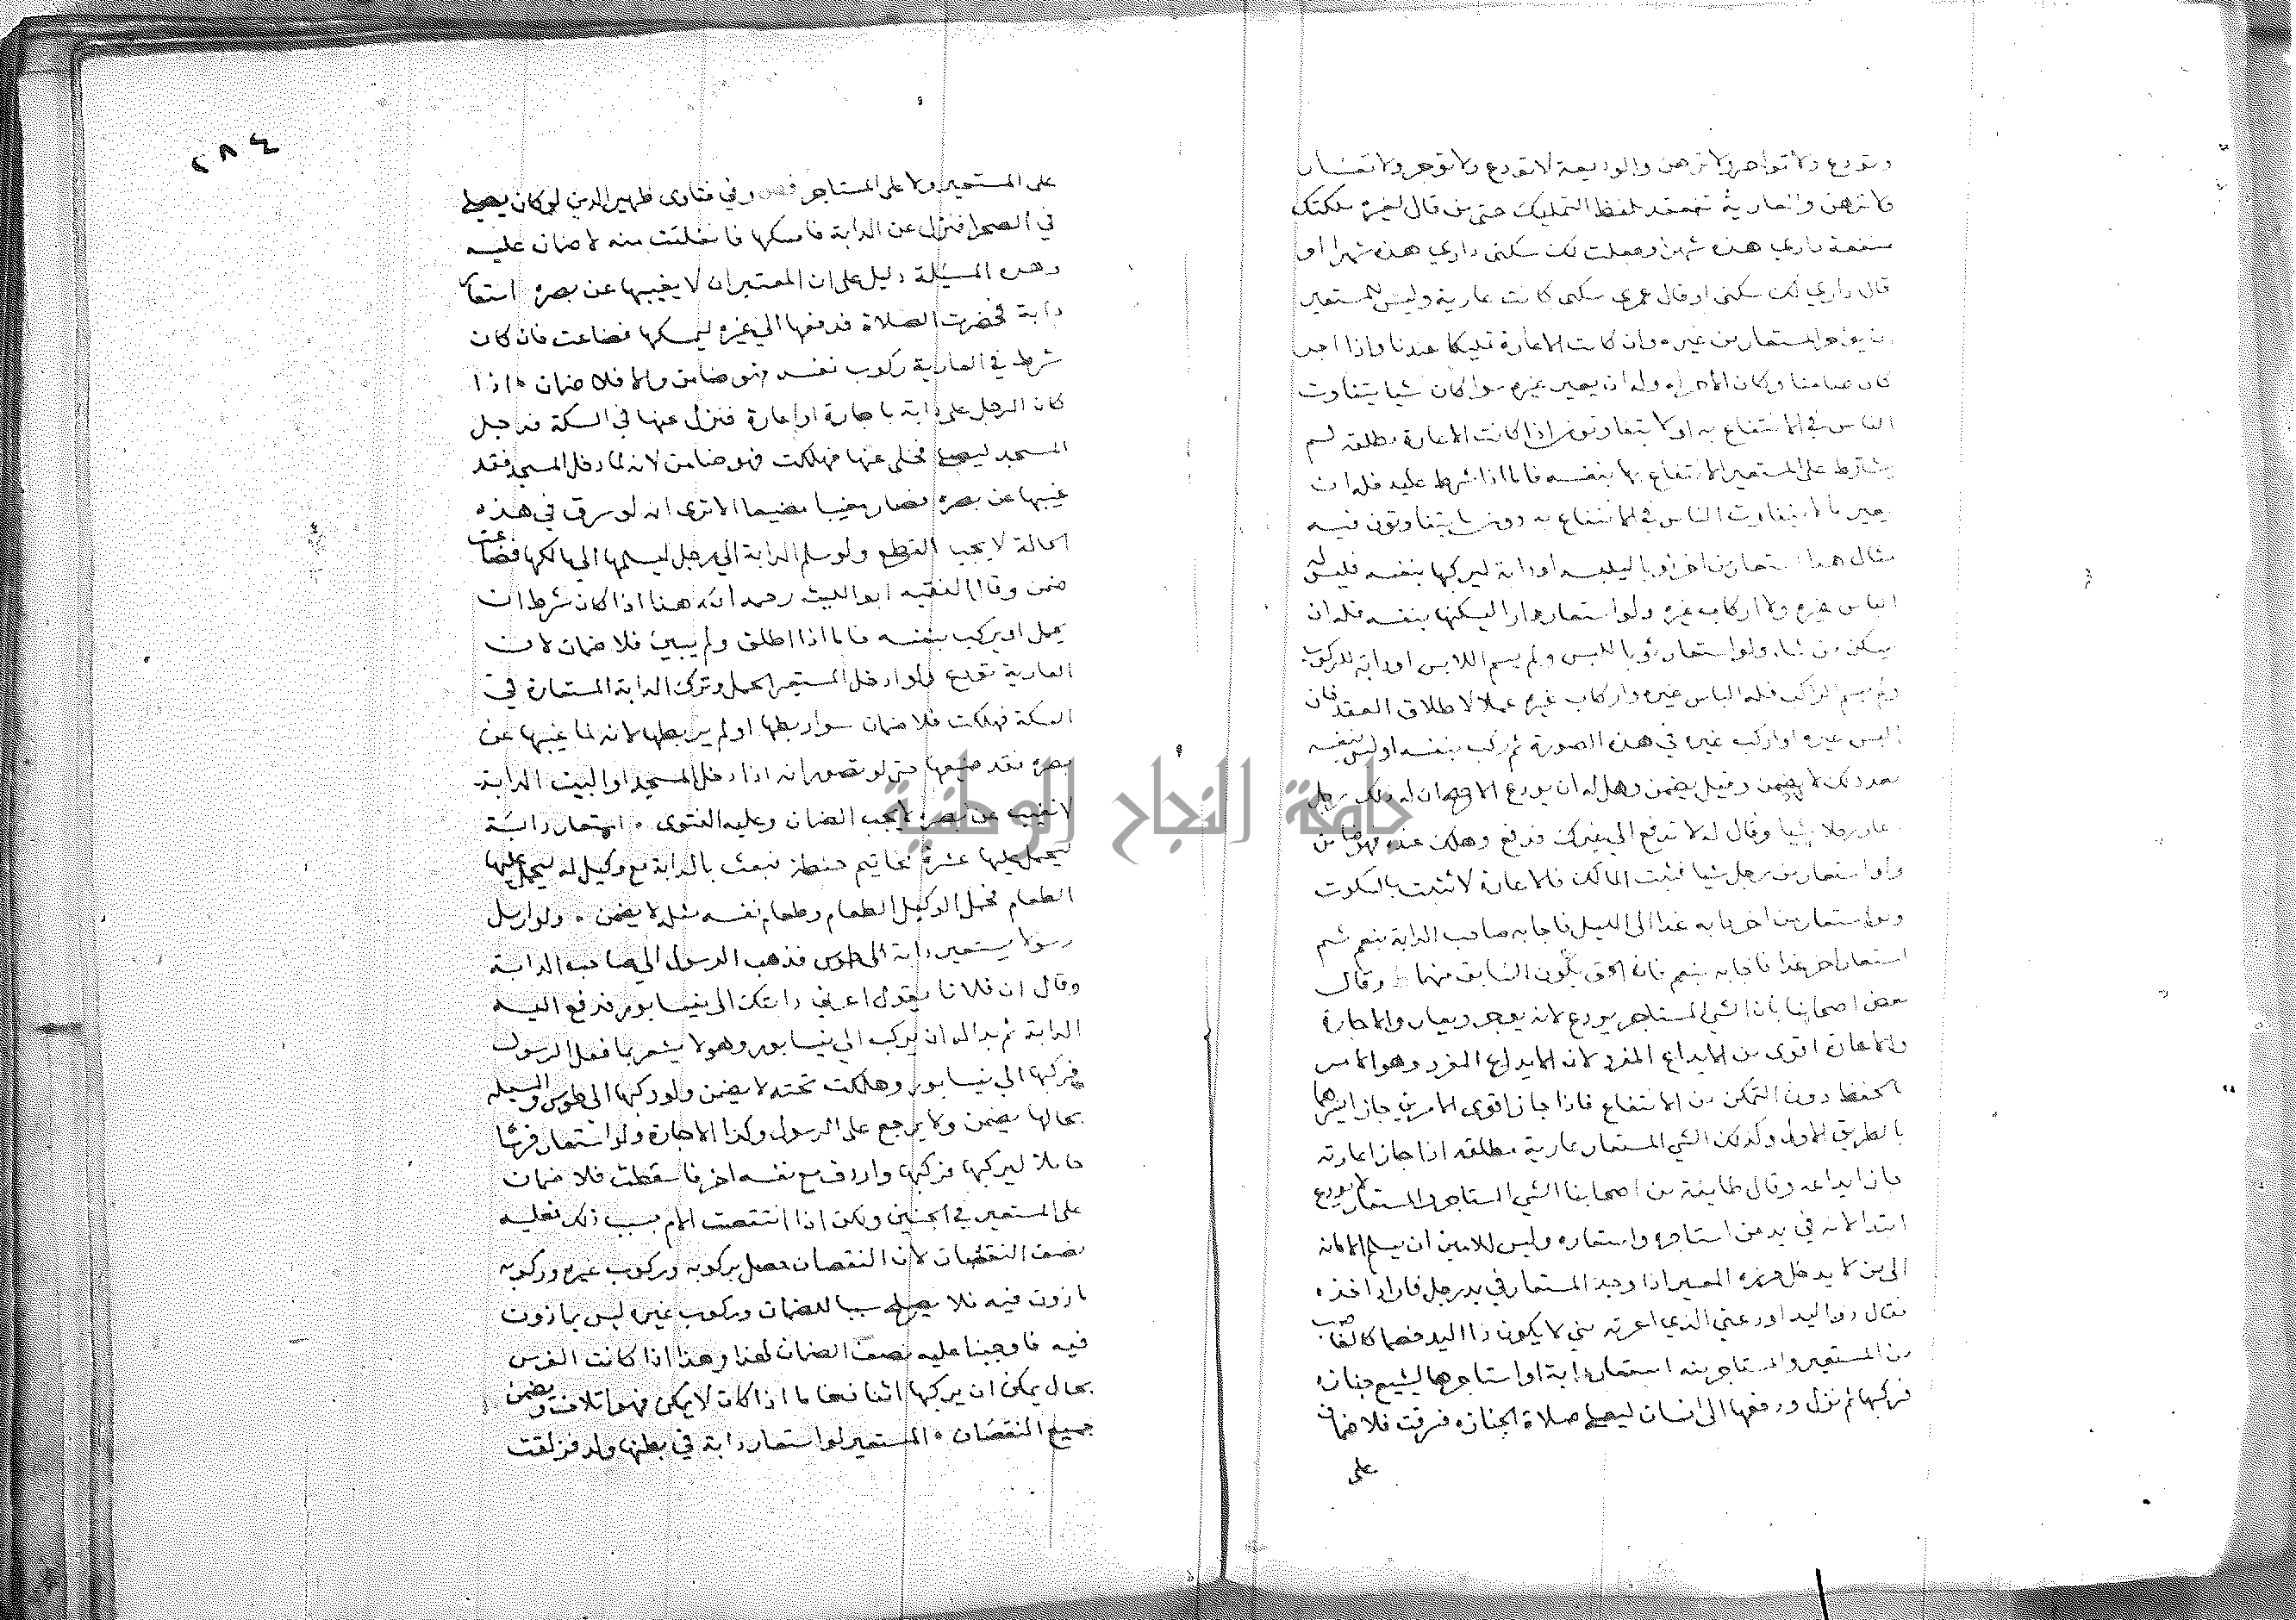 وتودع ولا تواجر ولا ترهن والوديعة لا تودع ولا توجر ولا تعار
ولا ترهن والعارية تنعقد بلفظ التمليك حتى من قال لغيره ملكتك
منفعة داري هذه شهرا وجعلت لك سكنى داري هذه شهرا او
قال داري لك سكنى او قال عمري سكنى كانت عارية وليس للمستعير
ان يواجر المستعار من غيره وان كانت الاعارة تمليكا عندنا واذا اجر
كان ضامنا وكان الاجر له وله ان يعير غيره سوا كان شيا يتفاوت
الناس في الانتفاع به او لا يتفاوتون اذا كانت الاعارة مطلقة لم
يشترط على المستعير الانتفاع بها بنفسه فاما اذا شرط عليه فله ان
يعير ما لا يتفاوت الناس في الانتفاع به دون ما يتفاوتون فيه
مثال هذا استعار من اخر ثوبا ليلبسه او دابة ليركبها بنفسه فليس له
الباس غيره ولا اركاب غيره ولو استعار دارا ليسكنها بنفسه فله ان
يسكن من شاء ولو استعار ثوبا للبس ولم يسم اللابس او دابة للركوب
ولم يسم الراكب فله الباس غيره واركاب غيره عملا لاطلاق العقد فان
البس غيره او اركب غيره في هذه الصورة ثم ركب بنفسه او لبس بنفسه
بعد ذلك لا يضمن وقيل يضمن وهل له ان يودع الاصح ان له ذلك رجل
اعار رجلا شيا وقال له لا تدفع الى غيرك فدفع وهلك عنده فهو ضامن
ولو استعار من رجل شيا فسكت المالك فالاعارة لا تثبت بالسكوت
ولو استعار من اخر دابة غدا الى الليل فاجابه صاحب الدابة بنعم ثم
استعار اخر غدا فاجابه بنعم فانه الحق يكون السابق منهما وقال
بعض اصحابنا بان الشي المستاجر يودع لانه يوجر ويعار والاجارة
والاعارة اقوى من الايداع المفرد لان الايداع المفرد وهو الامر
بالحفظ دون التمكن من الانتفاع فاذا جاز اقوى الامرين جاز ايسرهما
بالطريق الاولى وكذلك الشي المستعار عارية مطلقة اذا جاز اعارته
جاز ايداعه وقال طايفة من اصحابنا الشي المستاجر والمستعار لا يودع
ابتدا لانه في يد من استاجره واستعاره وليس للامين ان يسلم الامانة
الى من لا يدخل المعير اذا وجد المستعار في يد رجل فاراد اخذه
فقال ذو اليد اودعني الذي اعرته مني لا يكون ذا اليد خصما كالغاصب
من المستعير والمستاجر منه استعار دابة او استاجرها ليشيع جنازة
فركبها ثم نزل ودفعها الى انسان ليصلي صلاة الجنازه فسرقت فلا ضمان
على
٢٨٤
على المستعير ولا على المستاجر وفي فتاوى ظهير الدين لو كان يصلي
في الصحرا فنزل عن الدابة فامسكها فانفلتت منه لا ضمان عليه
وهذه المسئلة دليل على ان المعتبر ان لا يغيبها عن بصره استعار
دابة فحضرت الصلاة فدفعها الى غيره ليمسكها فضاعت فان كان
شرط في العارية ركوب نفسه فهو ضامن والا فلا ضمان ٥ اذا
كان الرجل على دابة باجارة او اعارة فنزل عنها في السكة فدخل
المسجد ليصلي فخلى عنها فهلكت فهو ضامن لانه لما دخل المسجد فقد
غيبها عن بصره فصار مضيعا الا ترى انه لو سرق في هذه
الحالة لا يجب القطع ولو سلم الدابة الى رجل ليسلمها الى مالكها فضاعت
ضمن وقال الفقيه ابو الليث رحمه الله هذا اذا كان شرط ان
يحمل او يركب بنفسه فاما اذا اطلق ولم يبين فلا ضمان لان
العارية تودع ولو ادخل المستعير الحمل وترك الدابة المستعارة في
السكة فهلكت فلا ضمان سوا ربطها او لم يربطها لانه لما غيبها عن
بصره فقد ضيعها حتى لو تصور انه اذا دخل المسجد او البيت الدابة
لا تغيب عن بصره لا يجب الضمان وعليه الفتوى ٥ استعار دابة
ليحمل عليها عشرة مخاتيم حنطة فبعث بالدابة مع وكيل له ليحمل عليها
الطعام فحمل الوكيل الطعام وطعام نفسه مثله لا يضمن ٥ ولو ارسل
رسولا يستعير دابة الى طوس فذهب الرسول الى صاحب الدابة
وقال ان فلانا يقول اعرني دابتك الى نيسابور فدفع اليه
الدابة ثم بدا له ان يركب الى نيسابور وهو لا يشعر بما فعل الرسول
فركبها الى نيسابور وهلكت تحته لا يضمن ولو ركبها الى طوس والمسئلة
بحالها يضمن ولا يرجع على الرسول وكذا الاجارة ولو استعار فرسا
حاملا ليركبها فركبها واردف مع نفسه اخر فاسقطت فلا ضمان
على المستعير في الجنين ولكن اذا انتقصت الام بسبب ذلك فعليه
نصف النقصان لان النقصان حصل بركوبه وركوب غيره وركوبه
ماذون فيه فلا يصلح سببا للضمان وركوب غيره ليس بماذون
فيه فاوجبنا عليه نصف الضمان لهذا وهذا اذا كانت الفرس
بحال يمكن ان يركبها اثنان فاما اذا كانت لا يمكن فهو اتلاف ويضمن
جميع النقصان ٥ المستعير لو استعار دابة في بطنها ولد فزلقت
جامعة النجاح الوطنية